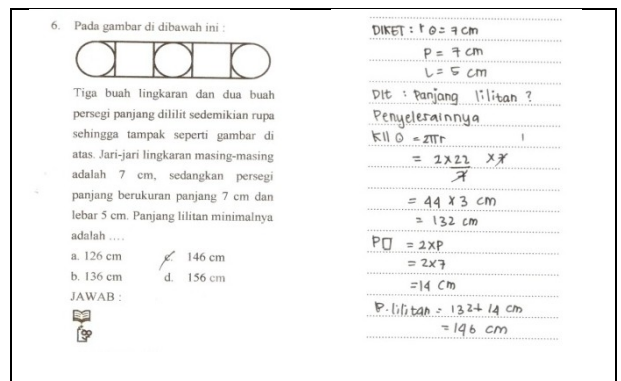 6. Pada gambar di dibawah ini :
Tiga buah lingkaran dan dua buah
persegi panjang dililit sedemikian rupa
sehingga tampak seperti gambar di
atas. Jari-jari lingkaran masing-masing
adalah 7 cm, sedangkan persegi
panjang berukuran panjang 7 cm dan
lebar 5 cm. Panjang lilitan minimalnya
adalah ....
a. 126 cm c. 146 cm
b. 136 cm d. 156 cm
JAWAB :
DIKET : r ⊙ = 7 cm
P = 7 cm
L = 5 cm
Dit : Panjang lilitan ?
Penyelerainnya
Kll O = 2πr
= 2 x 22 x 7
7
= 44 x 3 cm
= 132 cm
P□ = 2xP
= 2x7
= 14 cm
P. lilitan = 132 + 14 cm
= 146 cm